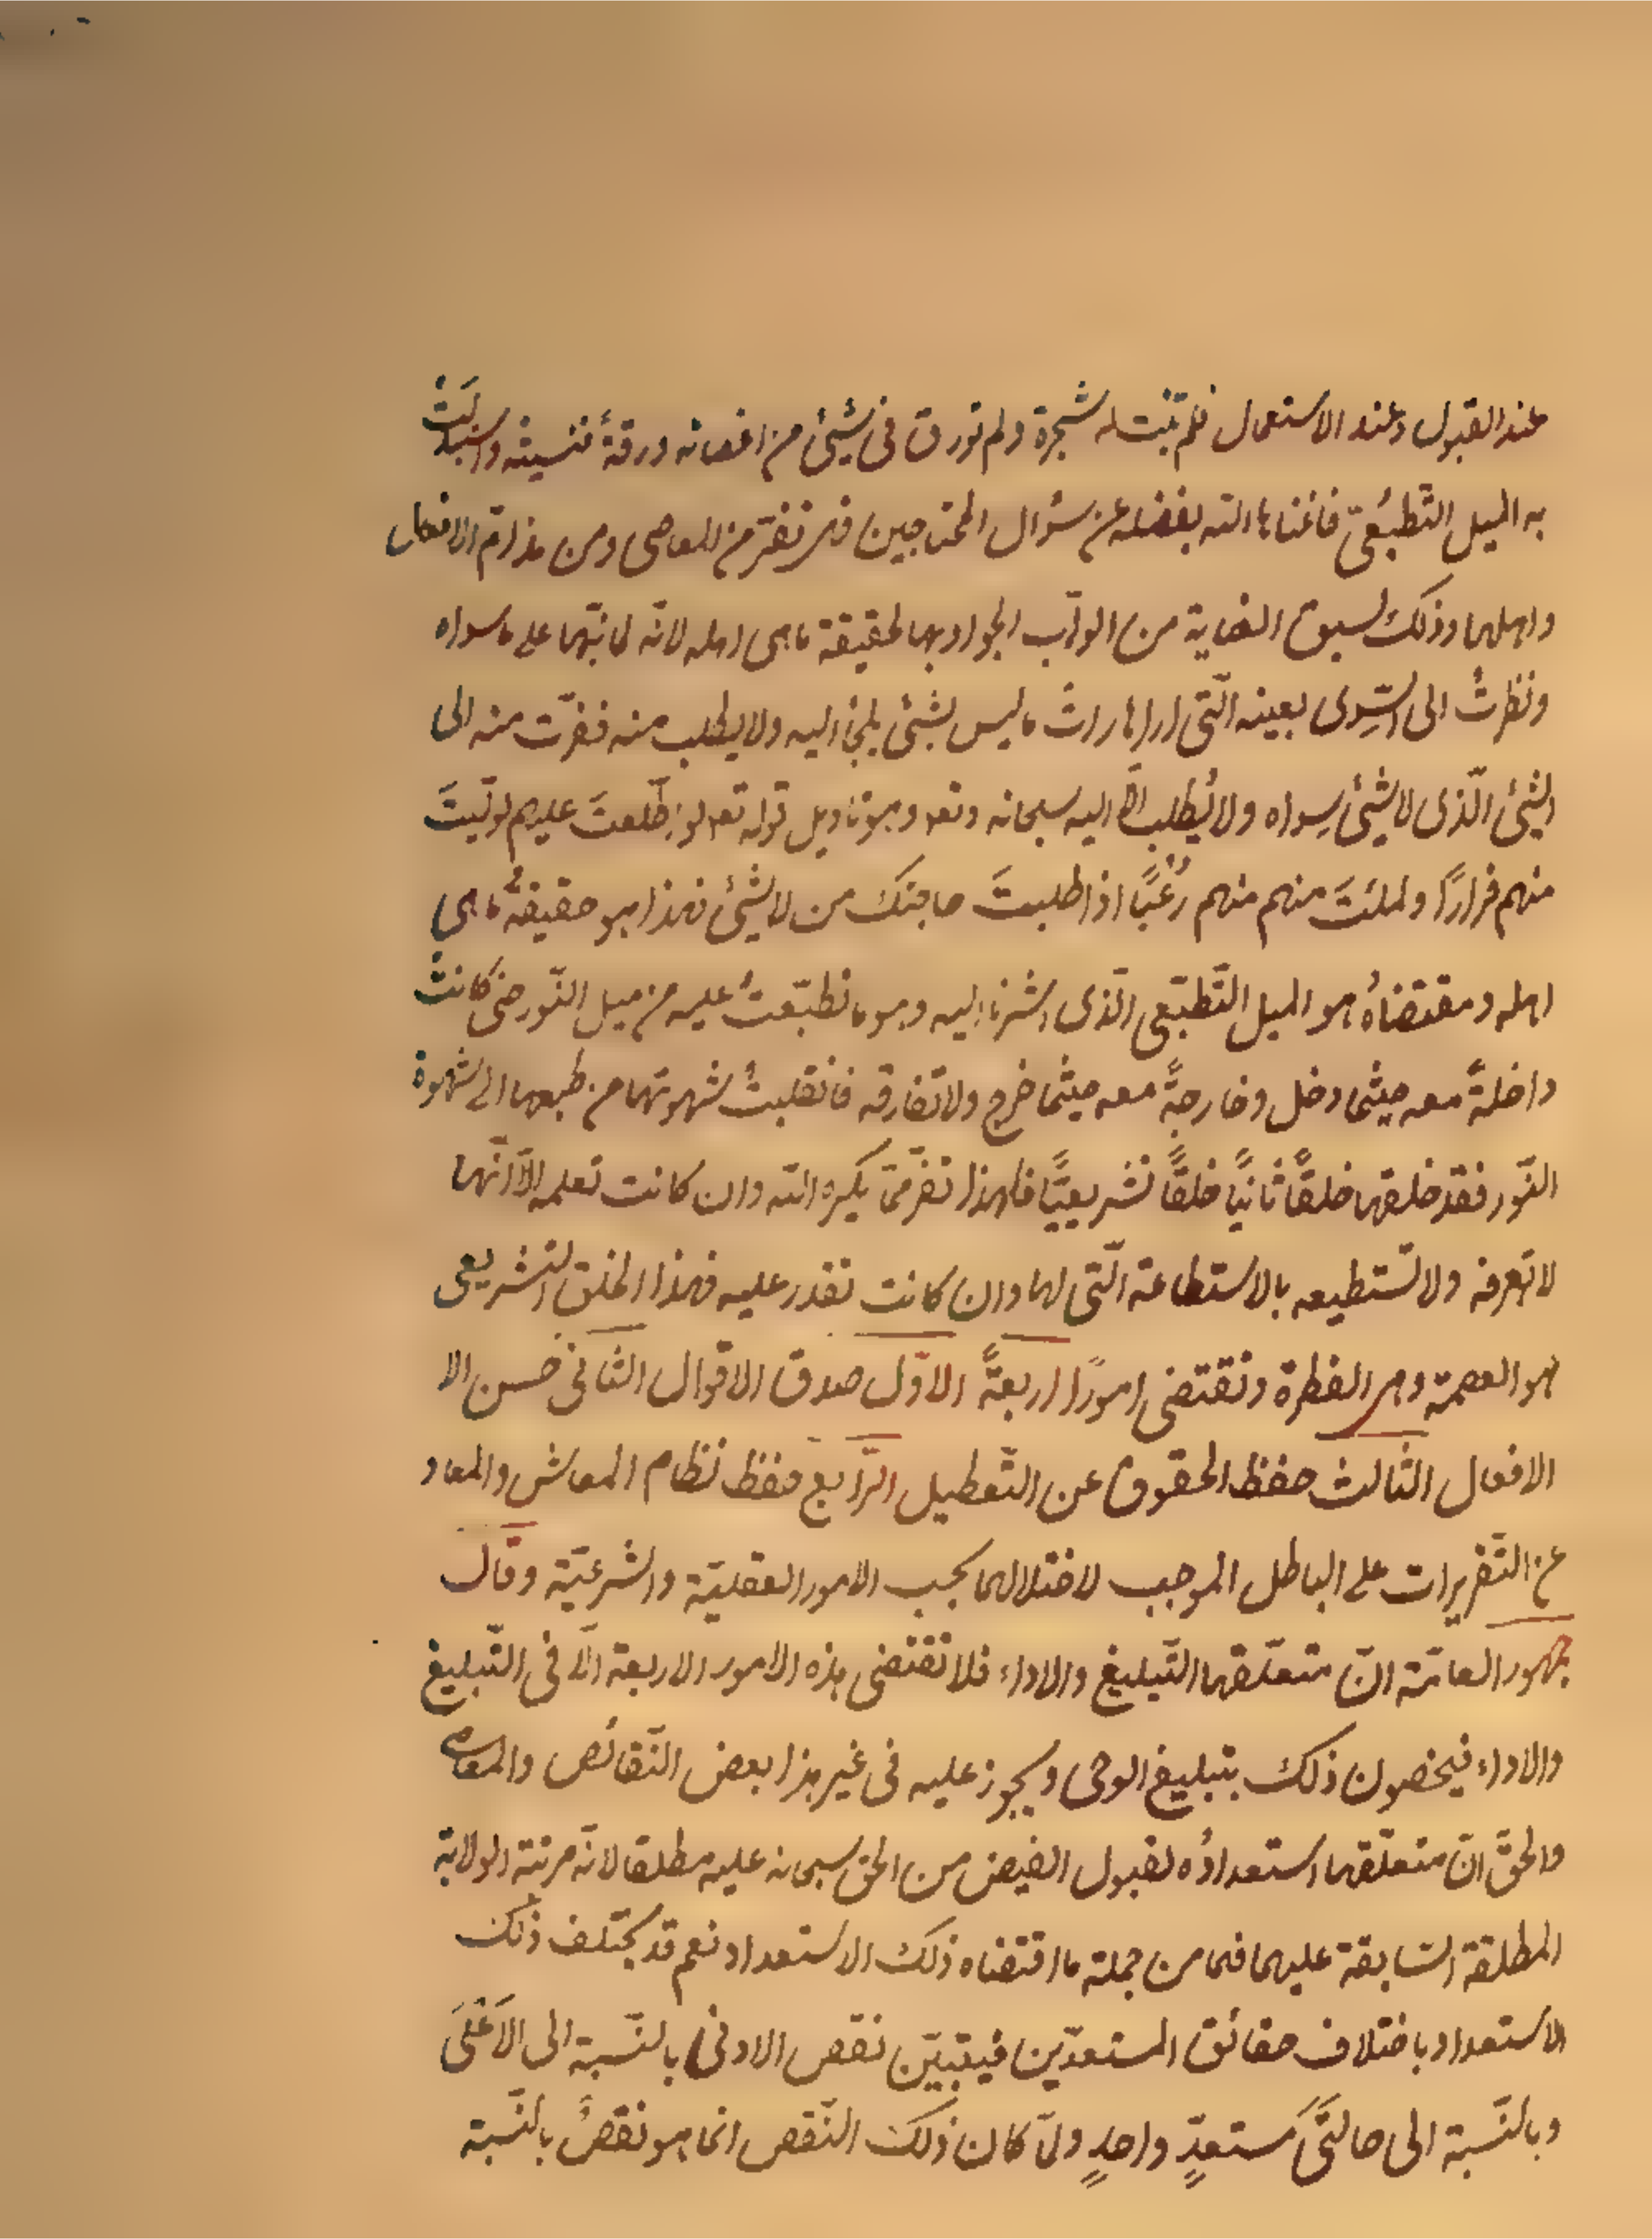 عند القبول وعند الاستعمال فلم تنبت له شجرة ولم تورق فى شيئ من اغصانه ورقةٌ فنسيته واستبدلَتْ
به الميل التّطبُعىّ فاغناها الله بفضله عن سؤال المحتاجين فهى تنفر من المعاصى ومن مذامّ الافعال
واهلها وذلك لسبوق العناية من الوهّاب الجواد بها لحقيقة ماهى اهله لانّه لما نبّهها على ماسواه
ونظرتْ الى السِّوى بعينه الّتى اراها راتْ ماليس بشيئ يلجأ اليه ولا يطلب منه ففرّت منه الى
الشيئ الّذى لا شيئ سِواه ولا يُطلب الّا اليه سبحانه وتعه وهو تاويل قوله تعه لو اطّلعتَ عليهم لولّيتَ
منهم فرارًا ولملئتَ منهم منهم رُعْبًا اذا طلبتَ حاجتك من لا شيئ فهذا هو حقيقةُ ماهى
اهله ومقتضاهُ هو الميل التّطبّعى الّذى اشرنا اليه وهو ما تطبّعتْ عليه من ميل النّور حتى كانتْ
داخلةً معه حيثما دخل وخارجةً معه حيثما خرج ولا تفارقه فانقلبتْ شهوتها من طبعها الى شهوة
النّور فقد خلقها خلقًا ثانيًا خلقًا تشريعيًّا فلهذا تفرّ ممّا يكره الله وان كانت تعلمه الّا انّها
لا تعرفه ولا تستطيعه بالاستطاعة الّتى لها وان كانت تقدر عليه فهذا الخلق التشريعى
هو العصمة وهى الفطرة وتقتضى امورًا اربعةً الاوّل صدق الاقوال الثانى حسن الا
الافعال الثالث حفظ الحقوق عن التّعطيل الرّابع حفظ نظام المعاش والمعاد
عن التّغريرات على الباطل الموجب لاختلالهما بحسب الامور العقليّة والشرعيّة وقال
جمهور العامّة انّ متعلّقها التّبليغ والاداء فلا تقتضى هذه الامور الاربعة الّا فى التّبليغ
والاداء فيخصون ذلك بتبليغ الوحى ويجوز عليه فى غير هذا بعض النّقائص والمعاصى
والحقّ انّ متعلّقها استعدادُه لقبول الفيض من الحق سبحانه عليه مطلقا لانّه مرتبة الولاية
المطلقة السّابقة عليهما فهما من جملة ما اقتضاه ذلك الاستعداد نعم قد يختلف ذلك
الاستعداد باختلاف حقائق المستعدّين فيتبيّن نقص الادنى بالنّسبة الى الاَعْلَى
وبالنّسبة الى حالتَىْ مستعدٍّ واحدٍ ولمّا كان ذلك النّقص انما هو نقصٌ بالنّسبة